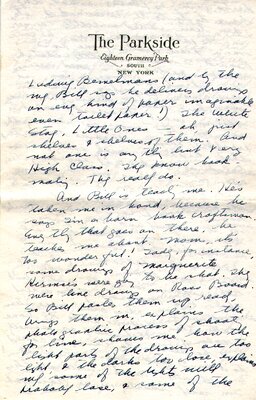 The Parkside
Eighteen Gramercy Park
SOUTH
NEW YORK
Ludwig Bemelmans (and by the
way, Bill says he delivers drawings
on any kind of paper imaginable
even toilet paper!) The White
Stag, Little Ones oh just
shelves & shelves of them. And
not one is any thing but very
High Class. They know book
making. They really do.
And Bill is teaching me. He's
taken me in hand, because he
says I'm a born book craftsman.
Every thing that goes on there he
teaches me about. Mom, it's
too wonderful! Today, for instance,
some drawings of Marguerite
were going to be shot. They
were line drawings on Ross Board.
So Bill pastes them up ready,
brings them in, explains the
photographic process of shooting
for line, shows me how the
light parts of the drawing are too
light, & the darks too close, explaining
some of the lights will
probably lose, & some of the